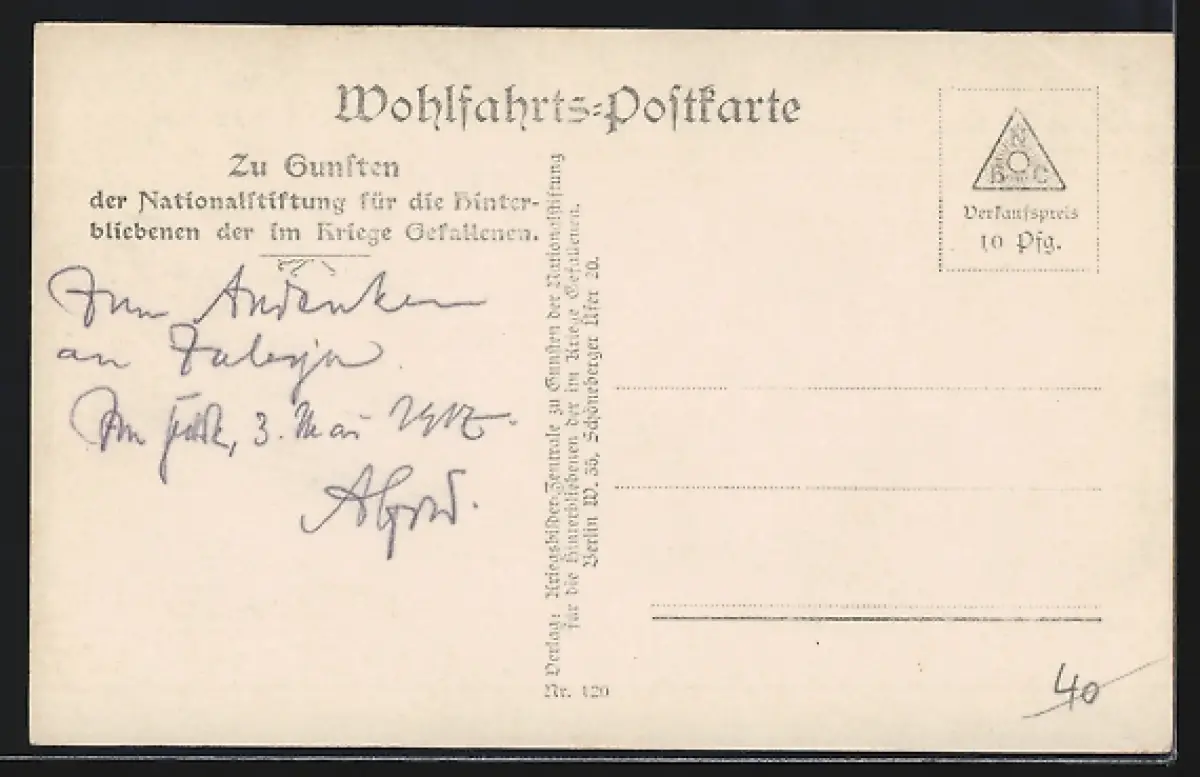 Wohlfahrts-Postkarte
Zu Gunsten
der Nationalstiftung für die Hinter-
bliebenen der im Kriege Gefallenen.
Zum Andenken
an
Im Felde, 3. Mai 1917.
Alfred.
Verlag: Kriegsbilder-Zentrale zu Gunsten der Nationalstiftung
für die Hinterbliebenen der im Kriege Gefallenen.
Berlin W. 35, Schöneberger Ufer 20.
Nr. 120
Verkaufspreis
10 Pfg.
40